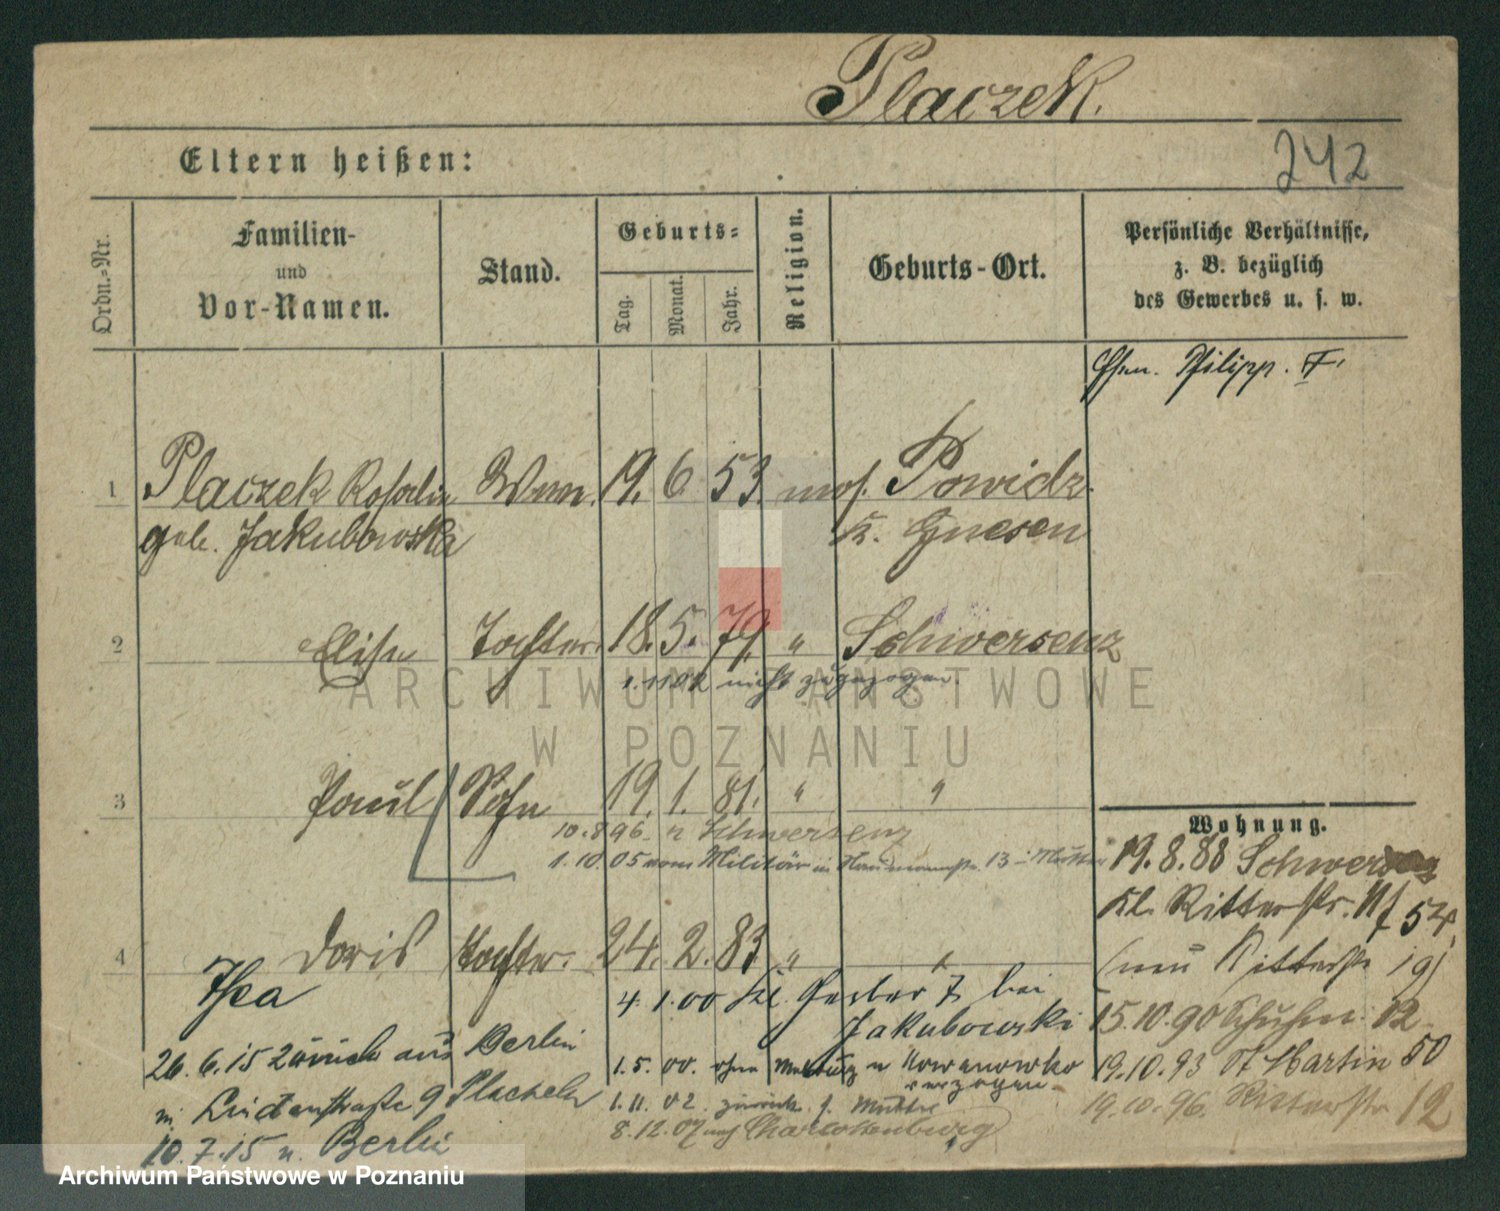 Placzek.
242
Eltern heißen:
Ordn.=Nr.
Familien-
und
Vor-Namen.
Stand.
Geburts=
Tag.
Monat.
Jahr.
Religion.
Geburts-Ort.
Persönliche Verhältnisse,
z. B. bezüglich
des Gewerbes u. s. w.
Ehem. Philipp. F.
1 Placzek Rosalie Wwe. 19. 6. 53. mos. Powidz
geb. Jakubowska K. Gnesen
2 Elise Tochter. 18. 5. 79 " Schwersenz
1.11.02 nicht zugezogen.
ARCHIWUM PAŃSTWOWE
W POZNANIU
3 Paul Sohn 19. 1. 81. " "
10.8.96. n Schwersenz
1.10.05 vom Militär in 13 Mutter
Wohnung.
19.8.88 Schwersenz
Kl. Ritterstr. 5
(neu Ritterstr 19)
4 Doris Tochter. 24. 2. 83 " "
Thea
4.1.00 Kl. Gerber 7 bei
Jakubowski
15.10.90 Schuhm. 12
26.6.15 zurück aus Berlin
1.5.00. ohne Meldung n Kowanowko
verzogen.
19.10.93 St Martin 50
n. Lindenstraße 9 Placzek
1.11.02 zurück z. Mutter
19.10.96. Ritterstr 12
8.12.07 nach Charlottenburg
10.7.15 n. Berlin
Archiwum Państwowe w Poznaniu